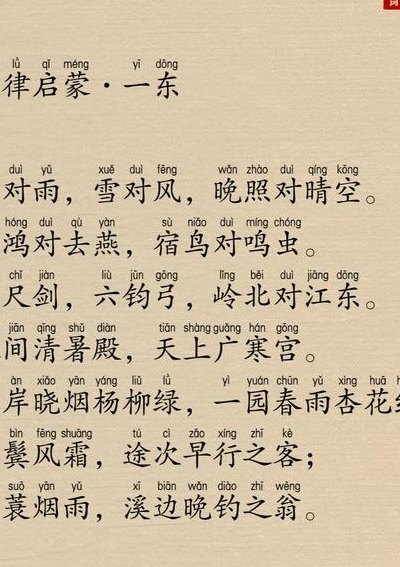 词
lǜ qǐ méng yī dōng
律启蒙·一东
duì yǔ xuě duì fēng wǎn zhào duì qíng kōng
对雨，雪对风，晚照对晴空。
hóng duì qù yàn sù niǎo duì míng chóng
鸿对去燕，宿鸟对鸣虫。
chǐ jiàn liù jūn gōng lǐng běi duì jiāng dōng
尺剑，六钧弓，岭北对江东。
jiān qīng shǔ diàn tiān shàng guǎng hán gōng
间清暑殿，天上广寒宫。
àn xiǎo yān yáng liǔ lǜ yì yuán chūn yǔ xìng huā
岸晓烟杨柳绿，一园春雨杏花
bìn fēng shuāng tú cì zǎo xíng zhī kè
鬓风霜，途次早行之客；
suō yān yǔ xī biān wǎn diào zhī wēng
蓑烟雨，溪边晚钓之翁。